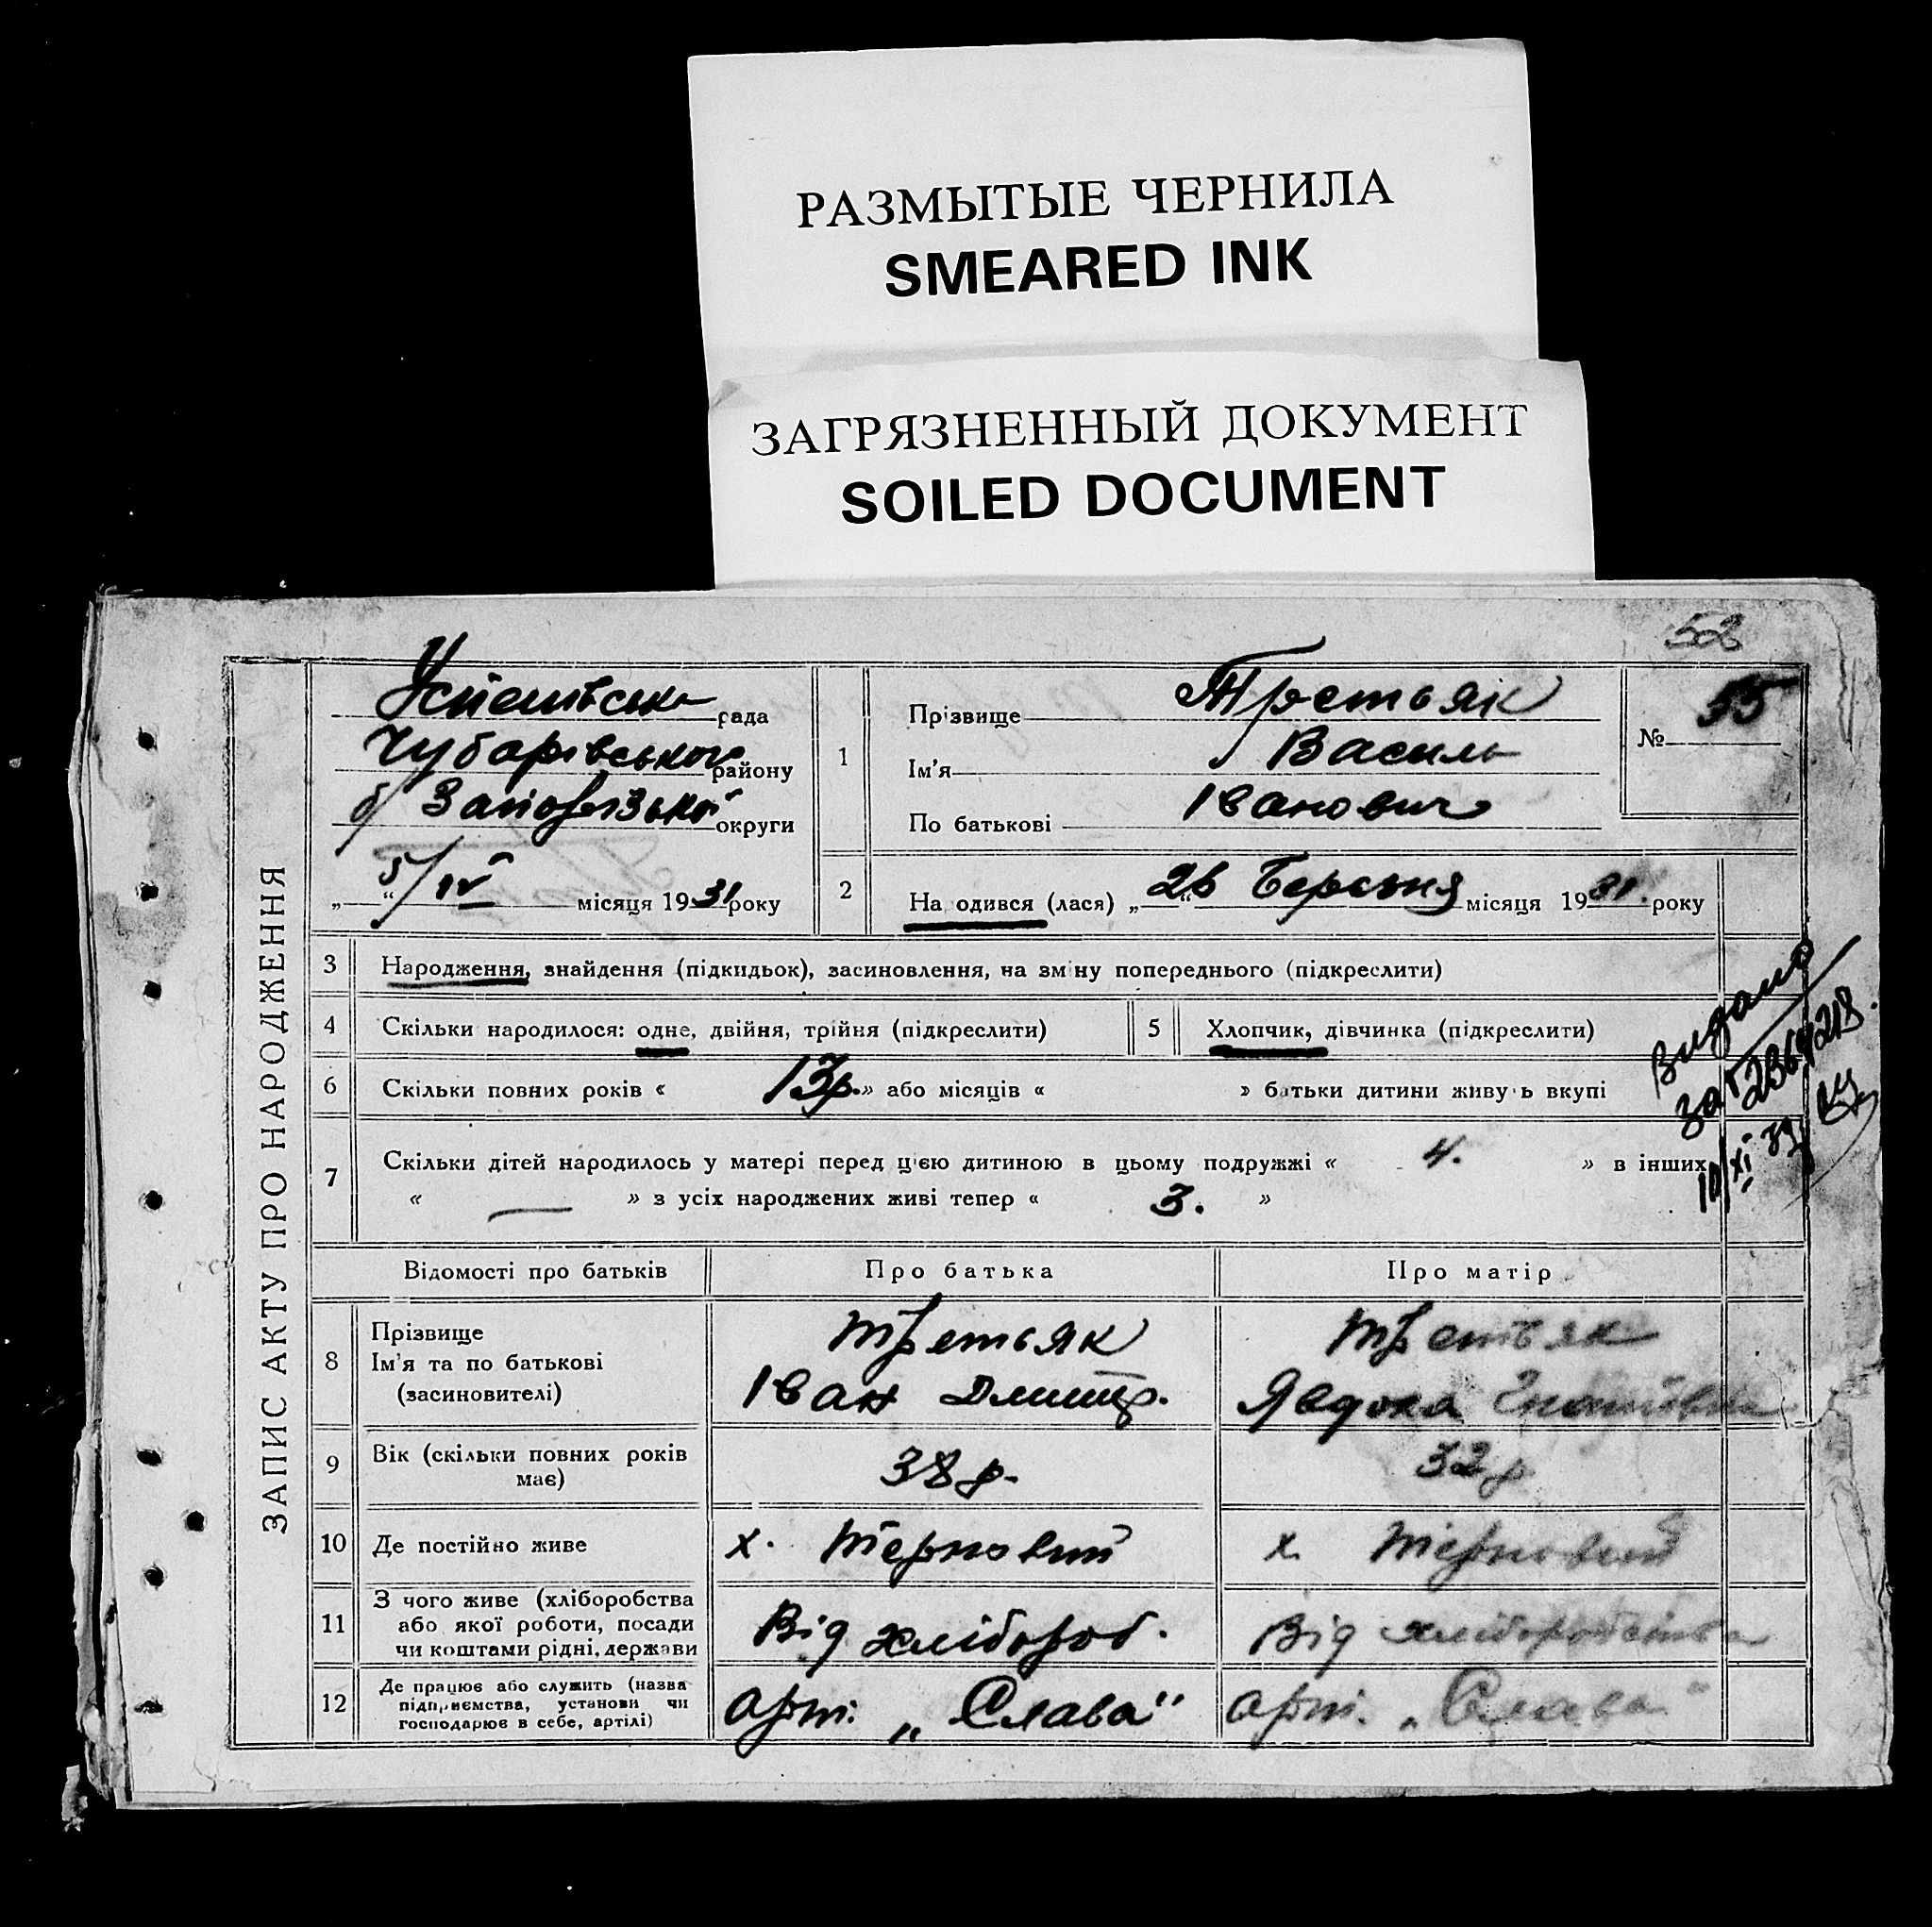 РАЗМЫТЫЕ ЧЕРНИЛА
SMEARED INK
ЗАГРЯЗНЕННЫЙ ДОКУМЕНТ
SOILED DOCUMENT
52
ЗАПИС АКТУ ПРО НАРОДЖЕННЯ
Успенівська рада
Чубарівського району
б/ Запорізької округи
„ 5/IV “ місяця 1931 року
1
Прізвище Третьяк
Ім'я Василь
По батькові Іванович
№ 55
2 На одився (лася) „26“ Березня місяця 1931. року
3 Народження, знайдення (підкидьок), засиновлення, на зміну попереднього (підкреслити)
4 Скільки народилося: одне, двійня, трійня (підкреслити)
5 Хлопчик, дівчинка (підкреслити)
6 Скільки повних років « 13р. » або місяців « » батьки дитини живу ь вкупі
7 Скільки дітей народилось у матері перед цією дитиною в цьому подружжі « 4. » в інших
« — » з усіх народжених живі тепер « 3. »
Видано
10/XI
Відомості про батьків Про батька Про матір
8 Прізвище
Ім'я та по батькові
(засиновителі)
Третьяк
Іван Дмитр.
Третьяк
Явдоха Гнатівна
9 Вік (скільки повних років
має)
38р.
32р
10 Де постійно живе х. Терновий х. Терновий
11 З чого живе (хліборобства
або якої роботи, посади
чи коштами рідні, держави
Від хлібороб.
Від хліборобства
12 Де працює або служить (назва
підприємства, установи чи
господарює в себе, артілі)
арт. „Слава“
арт. „Слава“